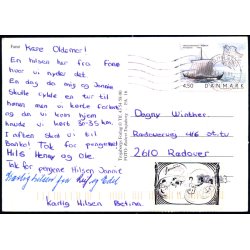 Kære Oldemor!
En hilsen her fra Fanø
hvor vi nyder det.
En dag da mig og Jannie
Skulle cykle en tur til
havnen men vi kørte forkert
og da vi kom hjem
havde vi kørt 30-35 km.
I aften skal vi til
Banko! Tak for pengene!
Hils Henny og Ole.
Tak for pengene Hilsen Jannie
Kærlig hilsen fra
Kærlig Hilsen Betina.
4.50 DANMARK
Dagny Winther
Rødovrevej
2610 Rødovre